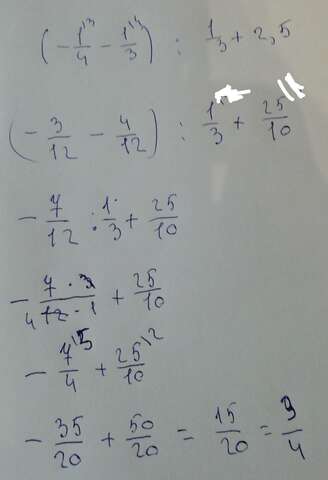 (- 1/4 \3 - 1/3 \4) : 1/3 + 2,5
(- 3/12 - 4/12) : 1/3 + 25/10
- 7/12 : 1/3 + 25/10
- 7 · 3 / 4 12 · 1 + 25/10
- 7/4 \5 + 25/10 \2
- 35/20 + 50/20 = 15/20 = 3/4